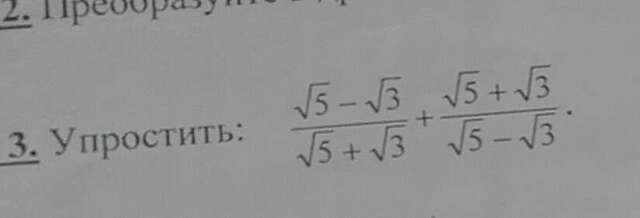 2. Преобразуйте
3. Упростить: (√5 − √3)/(√5 + √3) + (√5 + √3)/(√5 − √3).